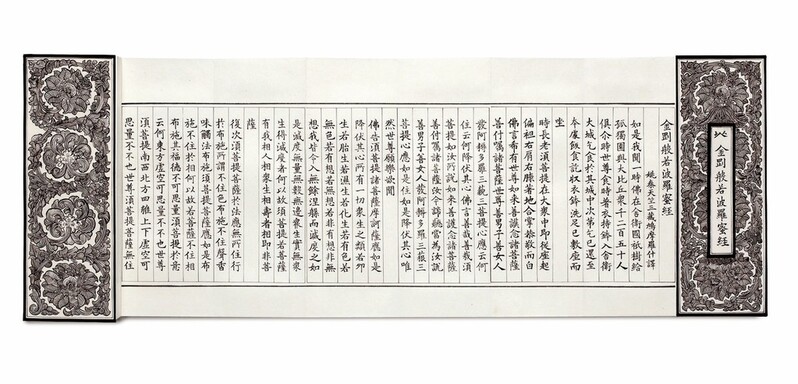 金剛般若波羅蜜経
金剛般若波羅蜜経
姚秦天竺三藏鳩摩羅什譯
如是我聞一時佛在舍衛國祇樹給
孤獨園與大比丘衆千二百五十人
俱尒時世尊食時著衣持鉢入舍衛
大城乞食於其城中次苐乞已還至
本處飯食訖収衣鉢洗足已敷座而
坐
時長老湏菩提在大衆中即從座起
偏袒右肩右膝著地合掌恭敬而白
佛言希有世尊如来善護念諸菩薩
善付嘱諸菩薩世尊善男子善女人
發阿耨多羅三藐三菩提心應云何
住云何降伏其心佛言善哉善哉湏
菩提如汝所說如来善護念諸菩薩
善付嘱諸菩薩汝今諦聽當為汝說
善男子善女人發阿耨多羅三藐三
菩提心應如是住如是降伏其心唯
然世尊願樂欲聞
佛告湏菩提諸菩薩摩訶薩應如是
降伏其心所有一切衆生之類若卵
生若胎生若濕生若化生若有色若
無色若有想若無想若非有想非無
想我皆令入無餘涅槃而滅度之如
是滅度無量無數無邊衆生實無衆
生得滅度者何以故湏菩提若菩薩
有我相人相衆生相壽者相即非菩
薩
復次湏菩提菩薩於法應無所住行
於布施所謂不住色布施不住聲香
味觸法布施湏菩提菩薩應如是布
施不住於相何以故若菩薩不住相
布施其福德不可思量湏菩提於意
云何東方虛空可思量不不也世尊
湏菩提南西北方四維上下虛空可
思量不不也世尊湏菩提菩薩無住